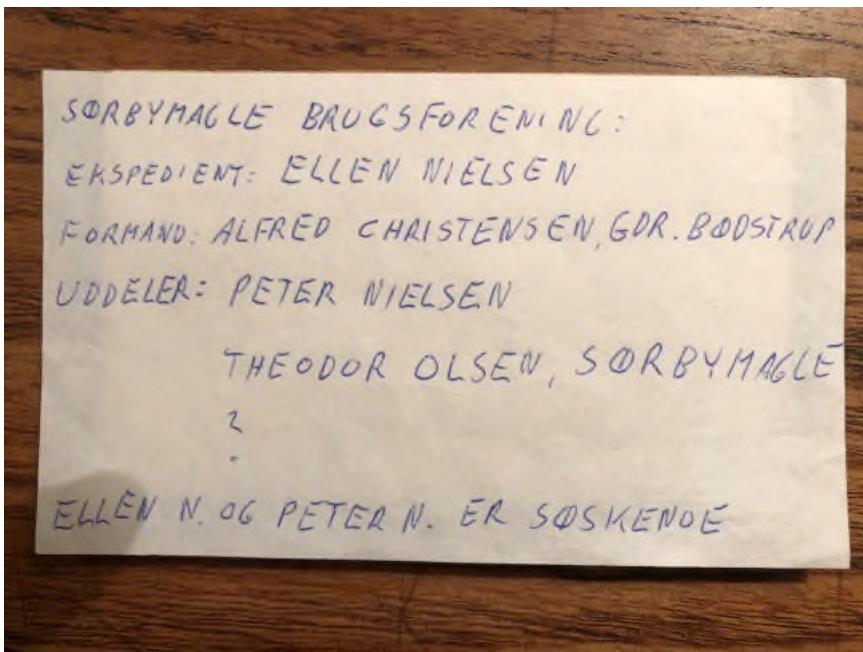 SØRBYMAGLE BRUGSFORENING:
EKSPEDIENT: ELLEN NIELSEN
FORMAND: ALFRED CHRISTENSEN, GDR. BØDSTRUP
UDDELER: PETER NIELSEN
THEODOR OLSEN, SØRBYMAGLE
?
ELLEN N. OG PETER N. ER SØSKENDE